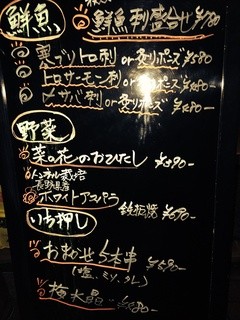 鮮魚
鮮魚刺盛合せ
寒ブリトロ刺 or 炙りポーズ ¥580
トロサーモン刺 or 炙りポーズ ¥580-
〆サバ刺 or 炙りポーズ ¥580-
野菜
菜の花のおひたし ¥390-
トンネル栽培
長野県産
ホワイトアスパラ 鉄板焼 ¥690-
いち押し
おまかせ5本串
(塩、ミソ、タレ)